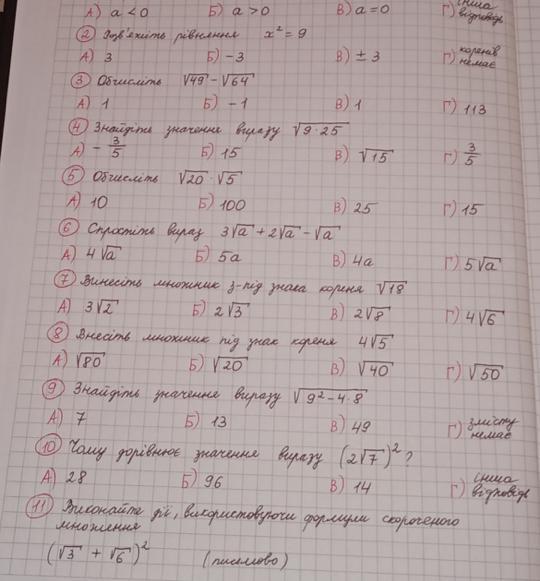 А) a < 0 Б) a > 0 В) a = 0 Г) інша відповідь
2 Розв'яжіть рівняння x² = 9
А) 3 Б) -3 В) ± 3 Г) коренів немає
3 Обчисліть √49 - √64
А) 1 Б) -1 В) 1 Г) 113
4 Знайдіть значення виразу √9·25
А) -3/5 Б) 15 В) √15 Г) 3/5
5 Обчисліть √20 · √5
А) 10 Б) 100 В) 25 Г) 15
6 Спростіть вираз 3√a + 2√a - √a
А) 4√a Б) 5a В) 4a Г) 5√a
7 Винесіть множник з-під знака кореня √18
А) 3√2 Б) 2√3 В) 2√8 Г) 4√6
8 Внесіть множник під знак кореня 4√5
А) √80 Б) √20 В) √40 Г) √50
9 Знайдіть значення виразу √9²-4·8
А) 7 Б) 13 В) 49 Г) змісту немає
10 Чому дорівнює значення виразу (2√7)²?
А) 28 Б) 96 В) 14 Г) інша відповідь
11 Виконайте дії, використовуючи формули скороченого
множення
(√3 + √6)² (письмово)